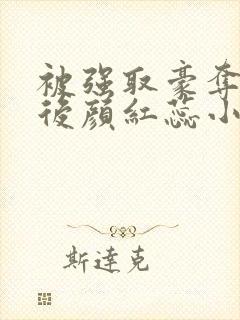 被强取豪夺
後顏紅蕊小
斯達克